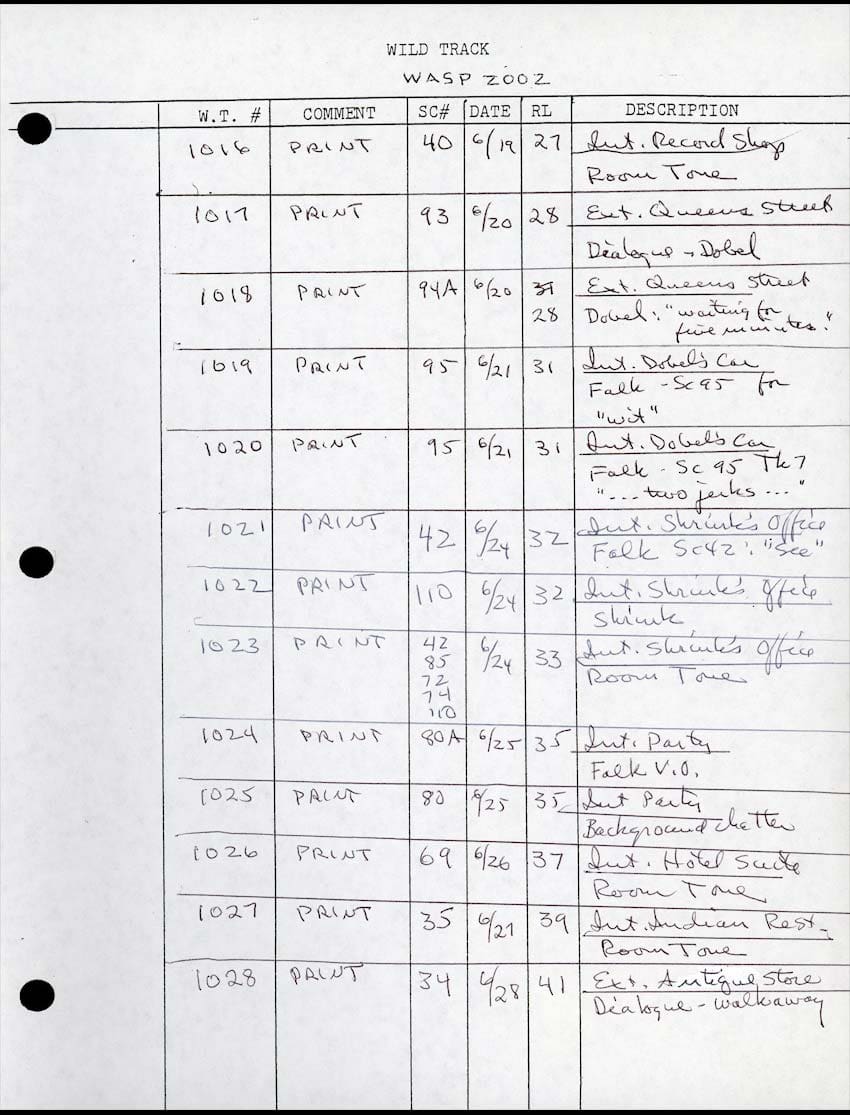 WILD TRACK
WASP 2002
W.T. # COMMENT SC# DATE RL DESCRIPTION
1016 PRINT 40 6/19 27 Int. Record Shop
Room Tone
1017 PRINT 93 6/20 28 Ext. Queens Street
Dialogue - Dobel
1018 PRINT 94A 6/20 31 Ext. Queens Street
28 Dobel: "waiting for
five minutes."
1019 PRINT 95 6/21 31 Int. Dobel's Car
Falk - Sc 95 for
"wit"
1020 PRINT 95 6/21 31 Int. Dobel's Car
Falk - Sc 95 Tk 7
"... two jerks ..."
1021 PRINT 42 6/24 32 Int. Shrink's Office
Falk Sc42: "See"
1022 PRINT 110 6/24 32 Int. Shrink's Office
Shrink
1023 PRINT 42 6/24 33 Int. Shrink's Office
85 Room Tone
72
74
110
1024 PRINT 80A 6/25 35 Int. Party
Falk V.O.
1025 PRINT 80 6/25 35 Int Party
Background chatter
1026 PRINT 69 6/26 37 Int. Hotel Suite
Room Tone
1027 PRINT 35 6/27 39 Int. Indian Rest.
Room Tone
1028 PRINT 34 6/28 41 Ext. Antique Store
Dialogue - walkaway